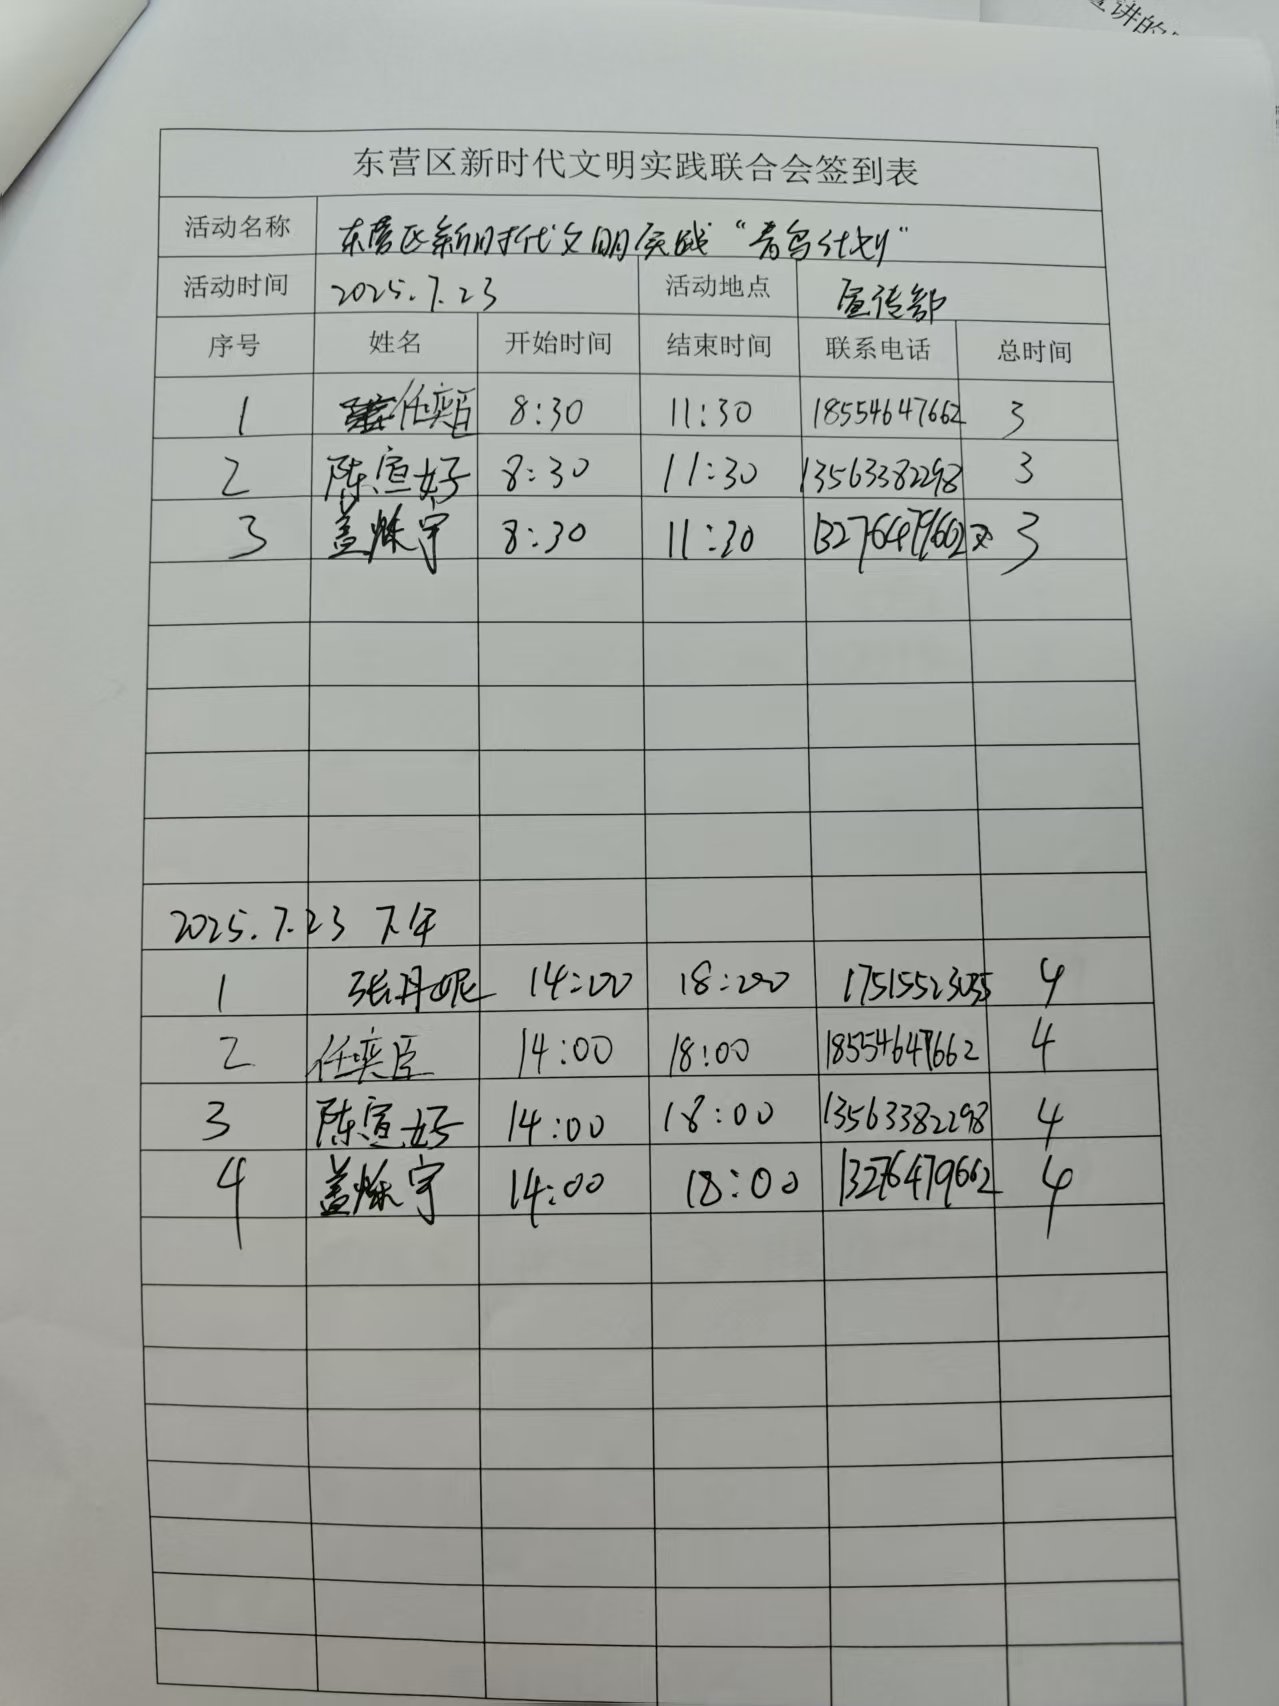 宣讲的
东营区新时代文明实践联合会签到表
活动名称 东营区新时代文明实践“青鸟计划”
活动时间 2025.7.23 活动地点 宣传部
序号 姓名 开始时间 结束时间 联系电话 总时间
1 任奕臣 8:30 11:30 18554647662 3
2 陈宣妤 8:30 11:30 13563382298 3
3 盖烁宇 8:30 11:30 13276479662 3
2025.7.23 下午
1 张丹妮 14:00 18:00 17515523055 4
2 任奕臣 14:00 18:00 18554647662 4
3 陈宣妤 14:00 18:00 13563382298 4
4 盖烁宇 14:00 18:00 13276479662 4